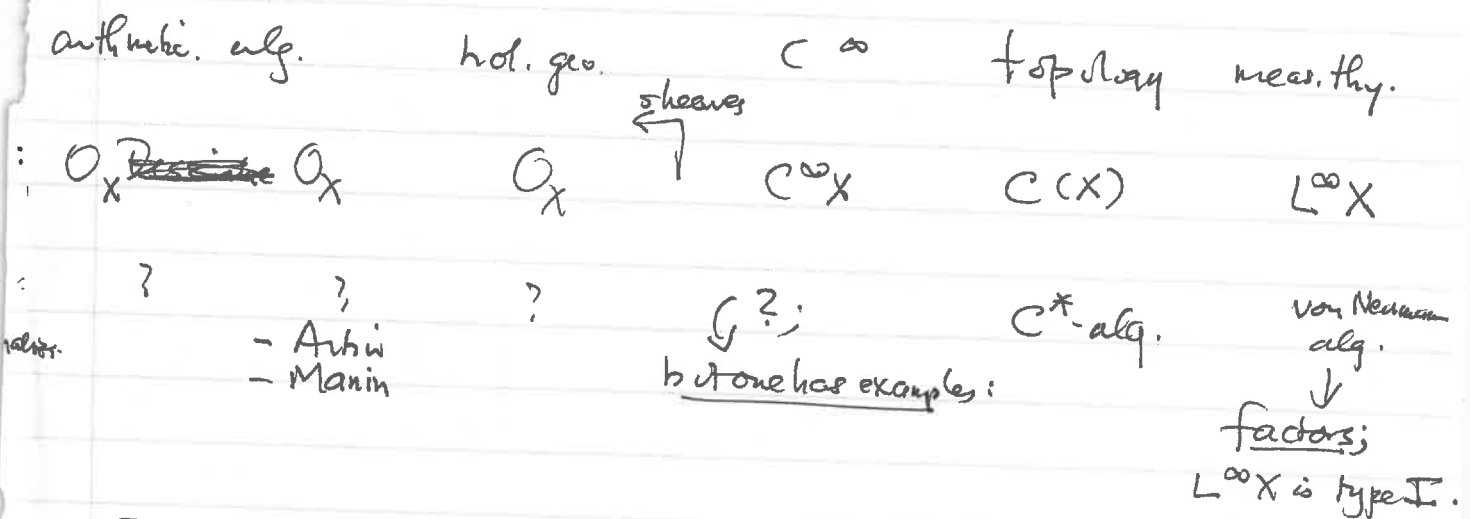 arithmetic. alg. hol. geo. C^∞ topology meas. thy.
sheaves
: O_X O_X O_X C^∞X C(X) L^∞X
: ? ?, ? ?; C*-alg. von Neumann alg.
- Artin
- Manin
but one has examples:
↓
factors;
L^∞X is type I.